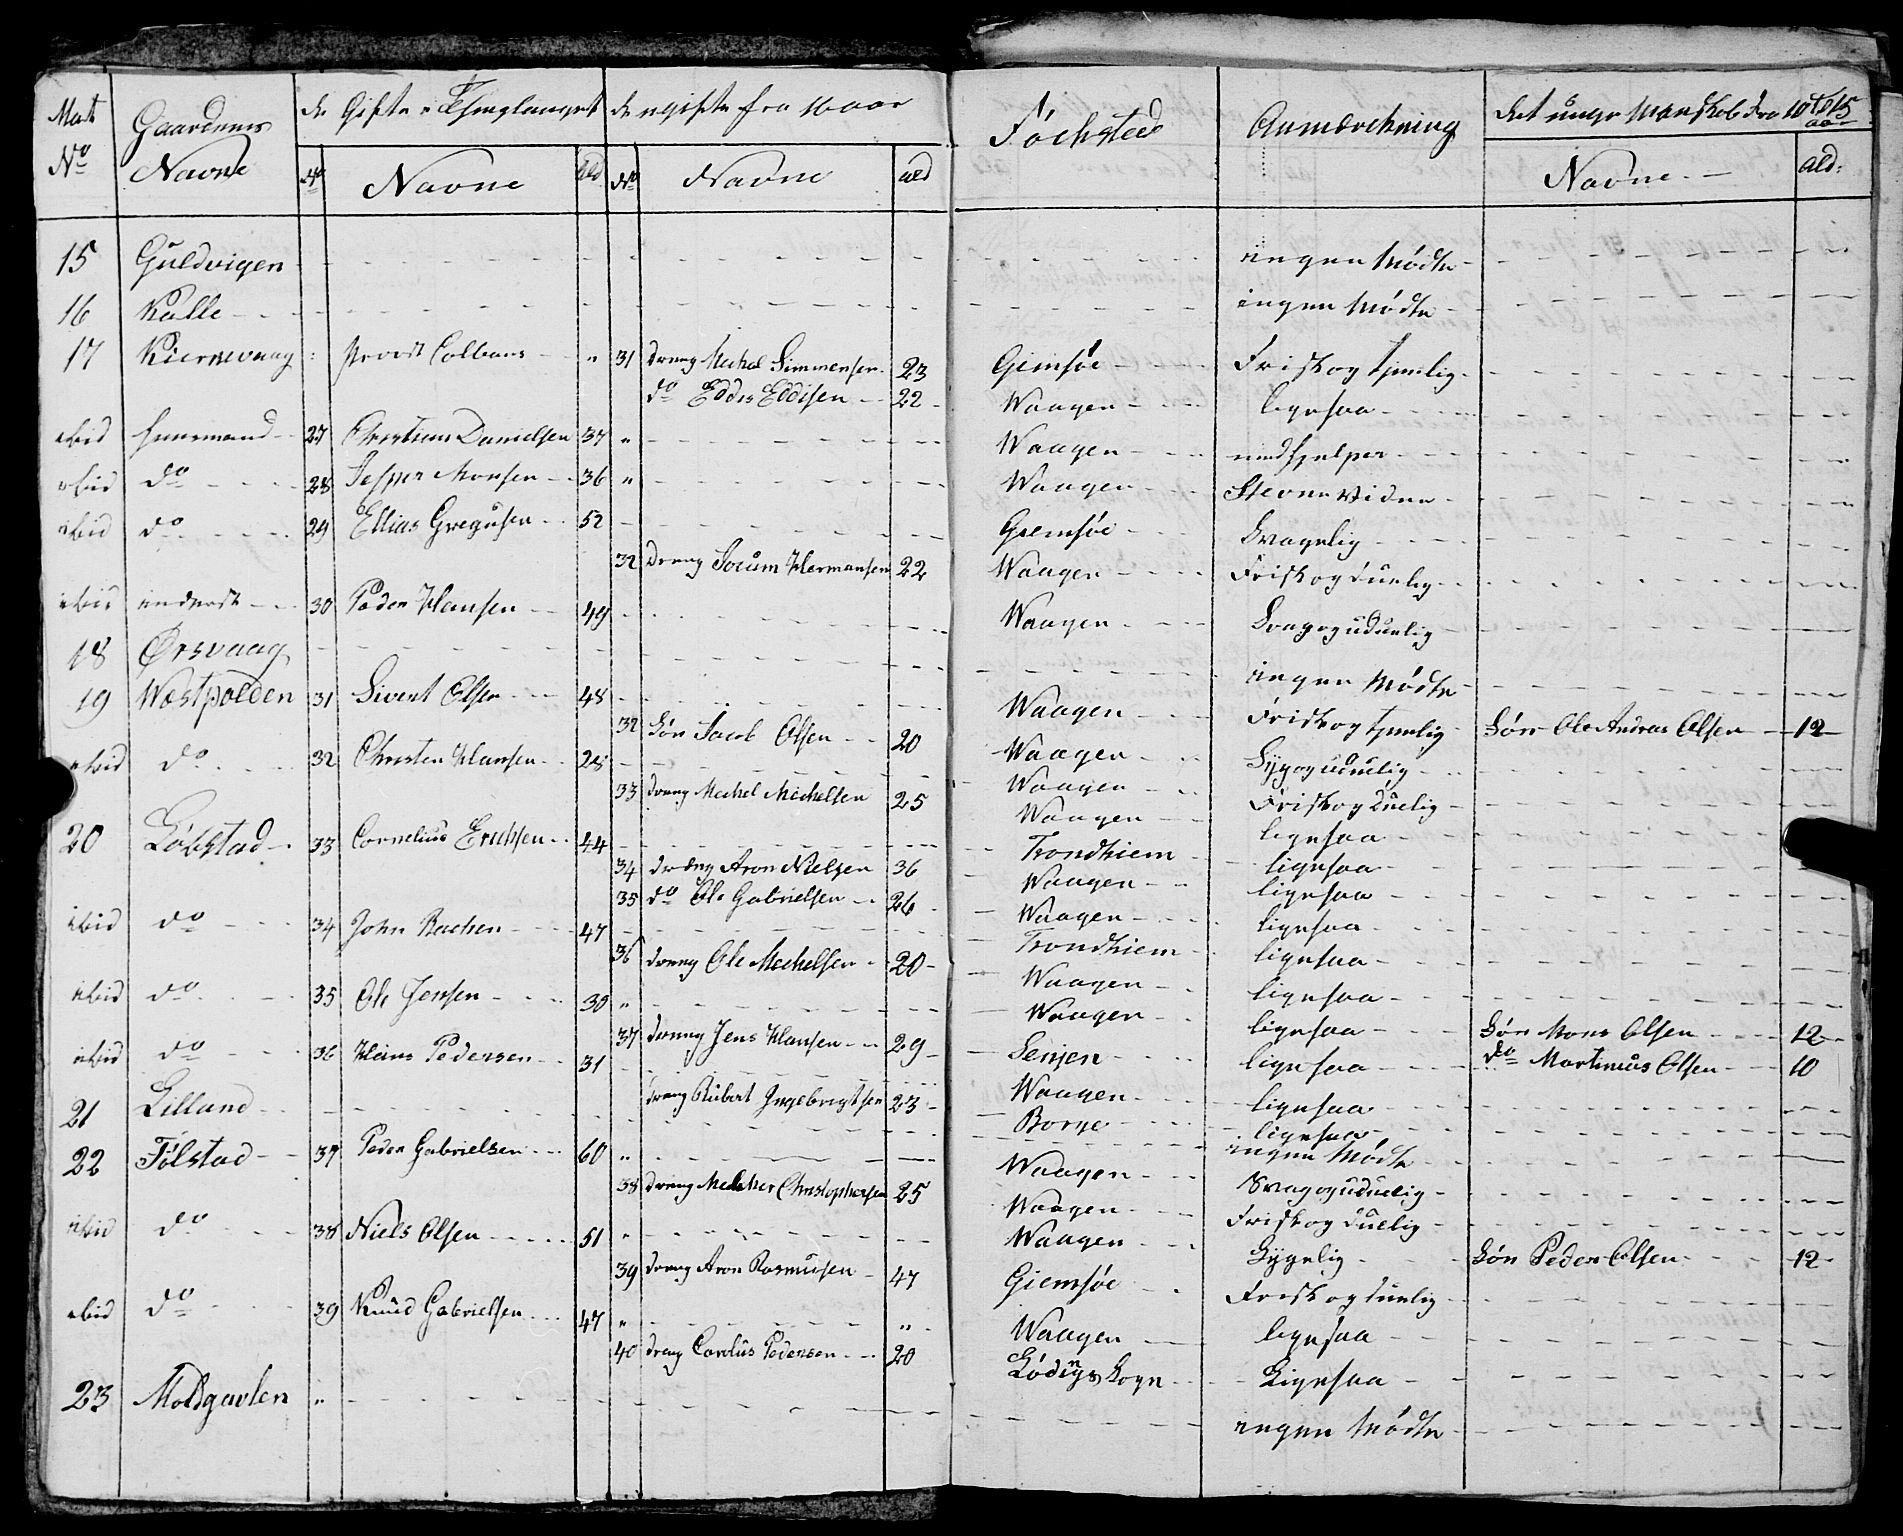 Mat No Gaardenes Navne de Gifte i Thinglauget de ugifte fra 16 aar Fødested Anmærchning Det unge Mandskab fra 10 til 15 aar
No Navne Ald No Navne ald Navne ald:
15 Guldvigen ingen Mødte
16 Kalle ingen Mødte
17 Kiernevaag Provst Colbans " 31 dreng Mechel Simmensen 23 Gimsøe Frisk og tienlig
do Eddis Eddisen 22 Waagen ligesaa
ibid huusmand 27 Christian Danielsen 37 " Waagen medhjelper
ibid do 28 Jesper Monsen 36 " Waagen Stevne Vidne
ibid do 29 Ellias Gregusen 52 Giemsøe Svagelig
32 Dreng Jocum Hermansen 22 Waagen Frisk og Duelig
ibid inderst 30 Peder Hansen 49 Waagen Svag og uduelig
18 Ørsvaag ingen Mødte
19 Wæstpolden 31 Sivert Olsen 48 Waagen Frisk og tienlig Søn Ole Andreas Olsen 12
32 Søn Jacob Olsen 20 Waagen Syg og uduelig
ibid do 32 Christen Hansen 28 Waagen Frisk og Duelig
33 dreng Mechel Mechelsen 25 Waagen ligesaa
20 Løbstad 33 Cornelius Erichsen 44 Trondhiem ligesaa
34 dreng Aron Nielsen 36 Waagen ligesaa
35 do Ole Gabrielsen 26 Waagen ligesaa
ibid do 34 John 47 Trondhiem ligesaa
36 dreng Ole Mechelsen 20 Waagen ligesaa
ibid do 35 Ole Jensen 30 " Waagen ligesaa Søn Mons Olsen 12
37 dreng Jens Hansen 29 Senjen ligesaa do Martinus Olsen 10
ibid do 36 Hans Pedersen 31 Waagen ligesaa
dreng Ingebrigtsen 23 Borge ligesaa
21 Lilland ingen Mødte
22 Følstad 37 Peder Gabrielsen 60 " Waagen Svag og uduelig
38 dreng Melcher Christophersen 25 Waagen Frisk og Duelig
ibid do 38 Niels Olsen 51 " Waagen Sygelig Søn Peder Olsen 12
39 dreng Aron Rasmusen 47 Giemsøe Frisk og tienlig
ibid do 39 Knud Gabrielsen 47 " " Waagen ligesaa
40 dreng Carolus Pedersen 20 Lødingens Sogn Ligesaa
23 Moldgavlen " ingen Mødte